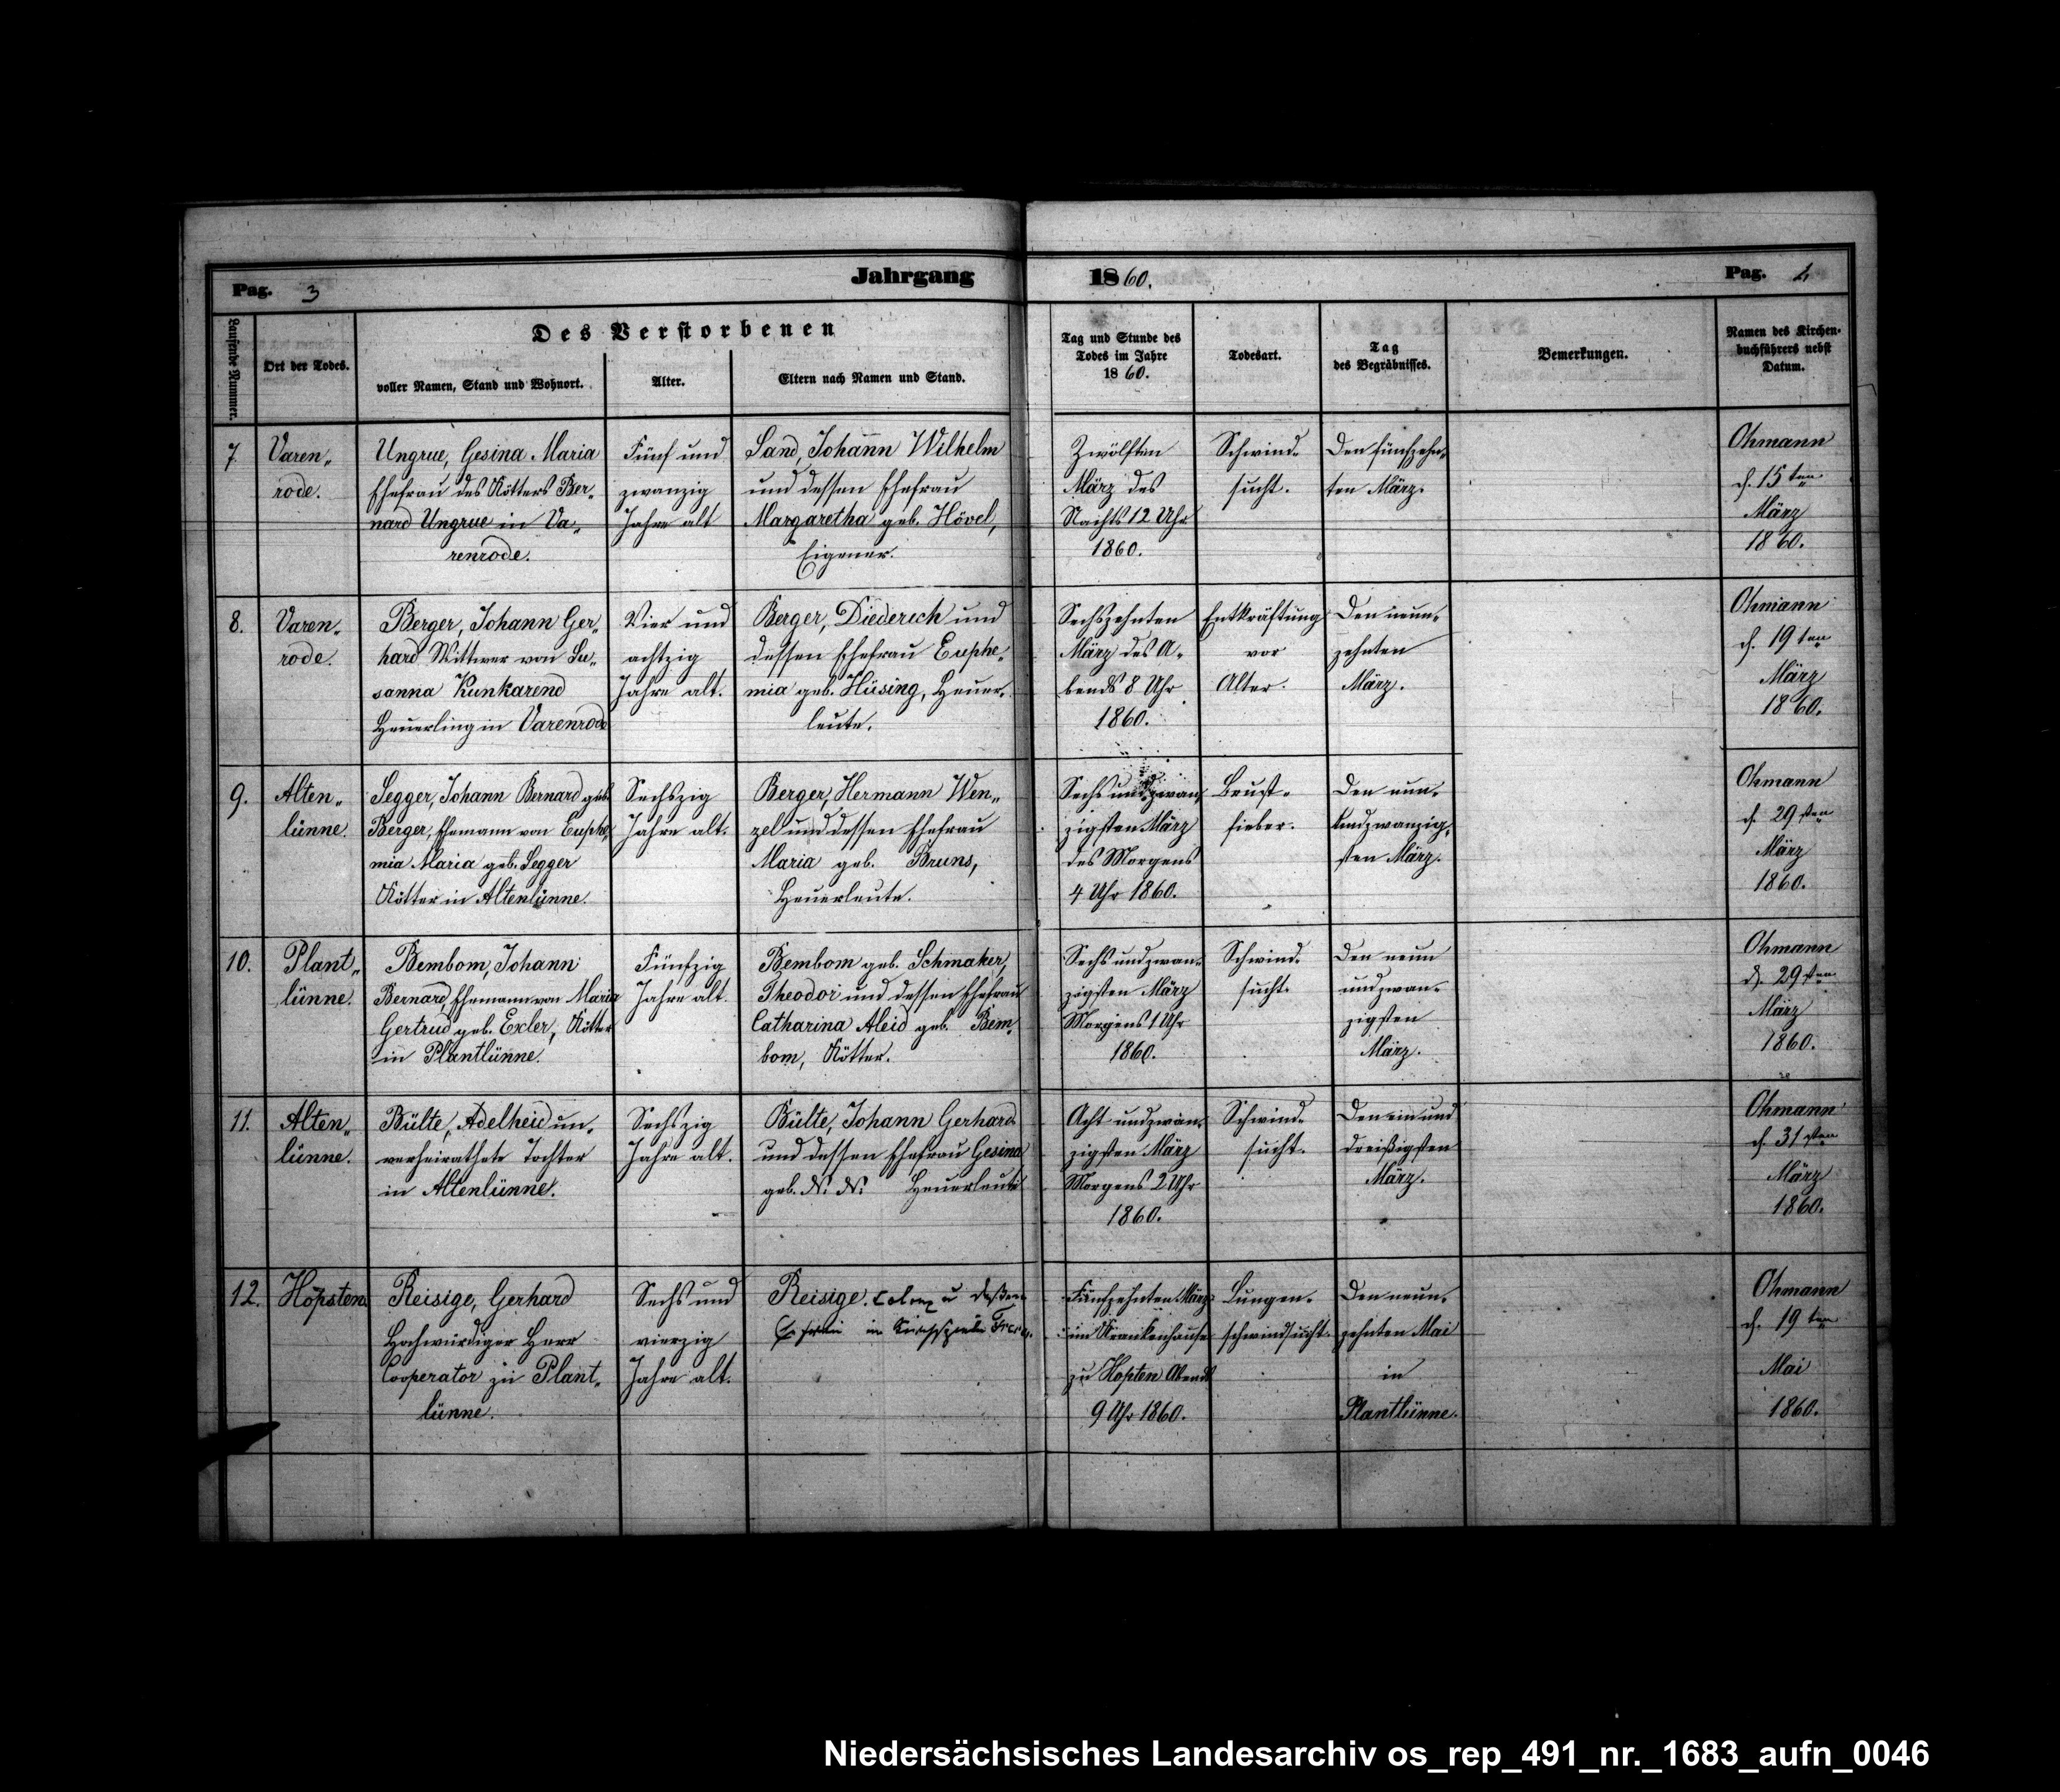 Pag. 3 Jahrgang 1860. Pag. 4
Laufende Nummer.
Ort des Todes.
Des Verstorbenen
voller Namen, Stand und Wohnort.
Alter.
Eltern nach Namen und Stand.
Tag und Stunde des
Todes im Jahre
1860.
Todesart.
Tag
des Begräbnisses.
Bemerkungen.
Namen des Kirchen-
buchführers nebst
Datum.
7.
Varen„
rode.
Ungrue, Gesina Maria
Ehefrau des Kötters Ber„
nard Ungrue in Va„
renrode.
Fünf und
zwanzig
Jahre alt
Sand, Johann Wilhelm
und dessen Ehefrau
Margaretha geb. Hövel,
Eigener.
Zwölften
März des
Nachts 12 Uhr
1860.
Schwind-
sucht.
Den fünfzehn„
ten März.
Ohmann
d. 15ten
März
1860.
8.
Varen„
rode.
Berger, Johann Ger„
hard Wittwer von Su„
sanna Kunkarend
Heuerling in Varenrode
Vier und
achtzig
Jahre alt.
Berger, Diederich und
dessen Ehefrau Euphe„
mia geb. Hüsing, Heuer„
leute.
Sechszehnten
März des A„
bends 8 Uhr
1860.
Entkräftung
vor
Alter.
Den neun„
zehnten
März.
Ohmann
d. 19ten
März
1860.
9.
Alten„
lünne.
Segger, Johann Bernard geb.
Berger, Ehemann von Euphe„
mia Maria geb. Segger
Kötter in Altenlünne.
Sechszig
Jahre alt.
Berger, Hermann Wen„
zel und dessen Ehefrau
Maria geb. Bruns,
Heuerleute.
Sechs undzwan„
zigsten März
des Morgens
4 Uhr 1860.
Brust-
fieber.
Den nun-
undzwanzig„
sten März.
Ohmann
d. 29sten
März
1860.
10.
Plant„
lünne.
Bembom, Johann
Bernard, Ehemann von Maria
Gertrud geb. Exler, Kötter
in Plantlünne.
Fünfzig
Jahre alt.
Bembom geb. Schmaker,
Theodor und dessen Ehefrau
Catharina Aleid geb. Bem„
bom, Kötter.
Sechs undzwan„
zigsten März
Morgens 1 Uhr
1860.
Schwind-
sucht.
Den neun
undzwan-
zigsten
März.
Ohmann
d. 29sten
März
1860.
11.
Alten„
lünne.
Bülte, Adelheid un„
verheirathete Tochter
in Altenlünne.
Sechszig
Jahre alt.
Bülte, Johann Gerhard
und dessen Ehefrau Gesina
geb. N. N. Heuerleute
Acht undzwan„
zigsten März
Morgens 2 Uhr
1860.
Schwind-
sucht.
Den ein und
dreißigsten
März.
Ohmann
d. 31sten
März
1860.
12.
Höpsten
Reisige, Gerhard
Hochwürdiger Herr
Cooperator zu Plant„
lünne.
Sechs und
vierzig
Jahre alt.
Reisige, Colon u. deßen
Ehefrau im Kirchspiele
Fünfzehnten März
im Krankenhause
zu Hopsten Abends
9 Uhr 1860.
Lungen-
schwindsucht.
Den neun„
zehnten Mai
in
Plantlünne.
Ohmann
d. 19ten
Mai
1860.
Niedersächsisches Landesarchiv os_rep_491_nr._1683_aufn_0046